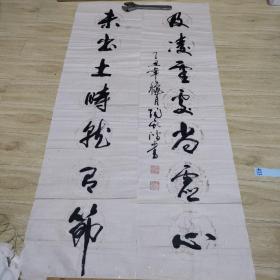 及凌雲處尚虛心
未出土時就有節
丁丑年 月 書